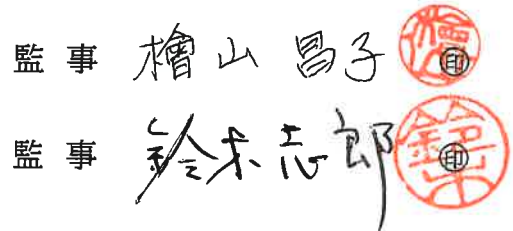 監事 檜山昌子 ㊞
監事 鈴木志郎 ㊞